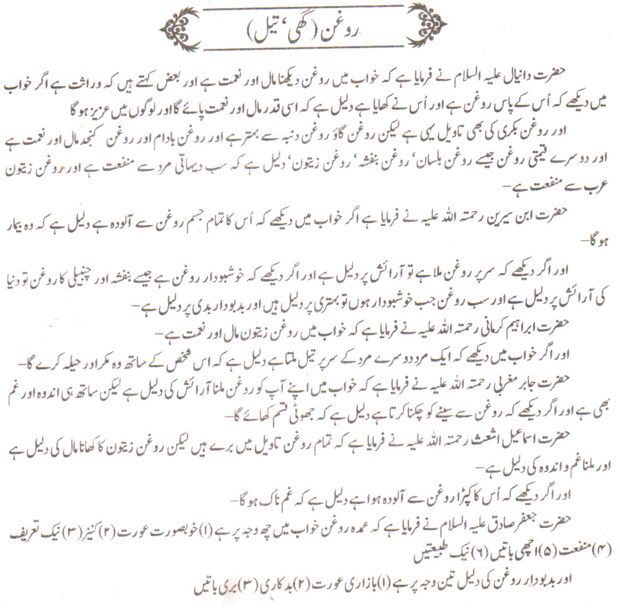 روغن (گھی، تیل)
حضرت دانیال علیہ السلام نے فرمایا ہے کہ خواب میں روغن دیکھنا مال اور نعمت ہے اور بعض کہتے ہیں کہ وراثت ہے اگر خواب
میں دیکھے کہ اُس کے پاس روغن ہے اور اُس نے کھایا ہے دلیل ہے کہ اسی قدر مال اور نعمت پائے گا اور لوگوں میں عزیز ہو گا
اور روغن بکری کی بھی تاویل یہی ہے لیکن روغن گاؤ روغن دنبہ سے بہتر ہے اور روغن بادام اور روغن کنجد مال اور نعمت ہے
اور دوسرے قیمتی روغن جیسے روغن بلسان، روغن بنفشہ، روغن زیتون، دلیل ہے کہ سب دیہاتی مرد سے منفعت ہے اور روغن زیتون
عرب سے منفعت ہے–
حضرت ابن سیرین رحمتہ اللہ علیہ نے فرمایا ہے اگر خواب میں دیکھے کہ اُس کا تمام جسم روغن سے آلودہ ہے دلیل ہے کہ وہ بیمار
ہو گا–
اور اگر دیکھے کہ سر پر روغن ملا ہے تو آرائش پر دلیل ہے اور اگر دیکھے کہ خوشبودار روغن ہے جیسے بنفشہ اور چنبیلی کا روغن تو دنیا
کی آرائش پر دلیل ہے اور سب روغن جب خوشبودار ہوں تو بہتری پر دلیل ہیں اور بدبودار بدی پر دلیل ہے–
حضرت ابراہیم کرمانی رحمتہ اللہ علیہ نے فرمایا ہے کہ خواب میں روغن زیتون مال اور نعمت ہے–
اور اگر خواب میں دیکھے کہ ایک مرد دوسرے مرد کے سر پر تیل ملتا ہے دلیل ہے کہ اس شخص کے ساتھ وہ مکر اور حیلہ کرے گا–
حضرت جابر مغربی رحمتہ اللہ علیہ نے فرمایا ہے کہ خواب میں اپنے آپ کو روغن ملنا آرائش کی دلیل ہے لیکن ساتھ ہی اندوہ اور غم
بھی ہے اور اگر دیکھے کہ روغن سے سینے کو چکنا کرتا ہے دلیل ہے کہ جھوٹی قسم کھائے گا–
حضرت اسماعیل اشعث رحمتہ اللہ علیہ نے فرمایا ہے کہ تمام روغن تاویل میں برے ہیں لیکن روغن زیتون کا کھانا مال کی دلیل ہے
اور ملنا غم و اندوہ کی دلیل ہے–
اور اگر دیکھے کہ اُس کا کپڑا روغن سے آلودہ ہوا ہے دلیل ہے کہ غم ناک ہو گا–
حضرت جعفر صادق علیہ السلام نے فرمایا ہے کہ عمدہ روغن خواب میں چھ وجہ پر ہے (۱) خوبصورت عورت (۲) کنیز (۳) نیک تعریف
(۴) منفعت (۵) اچھی باتیں (۶) نیک طبیعتیں
اور بدبودار روغن کی دلیل تین وجہ پر ہے (۱) بازاری عورت (۲) بدکاری (۳) بری باتیں